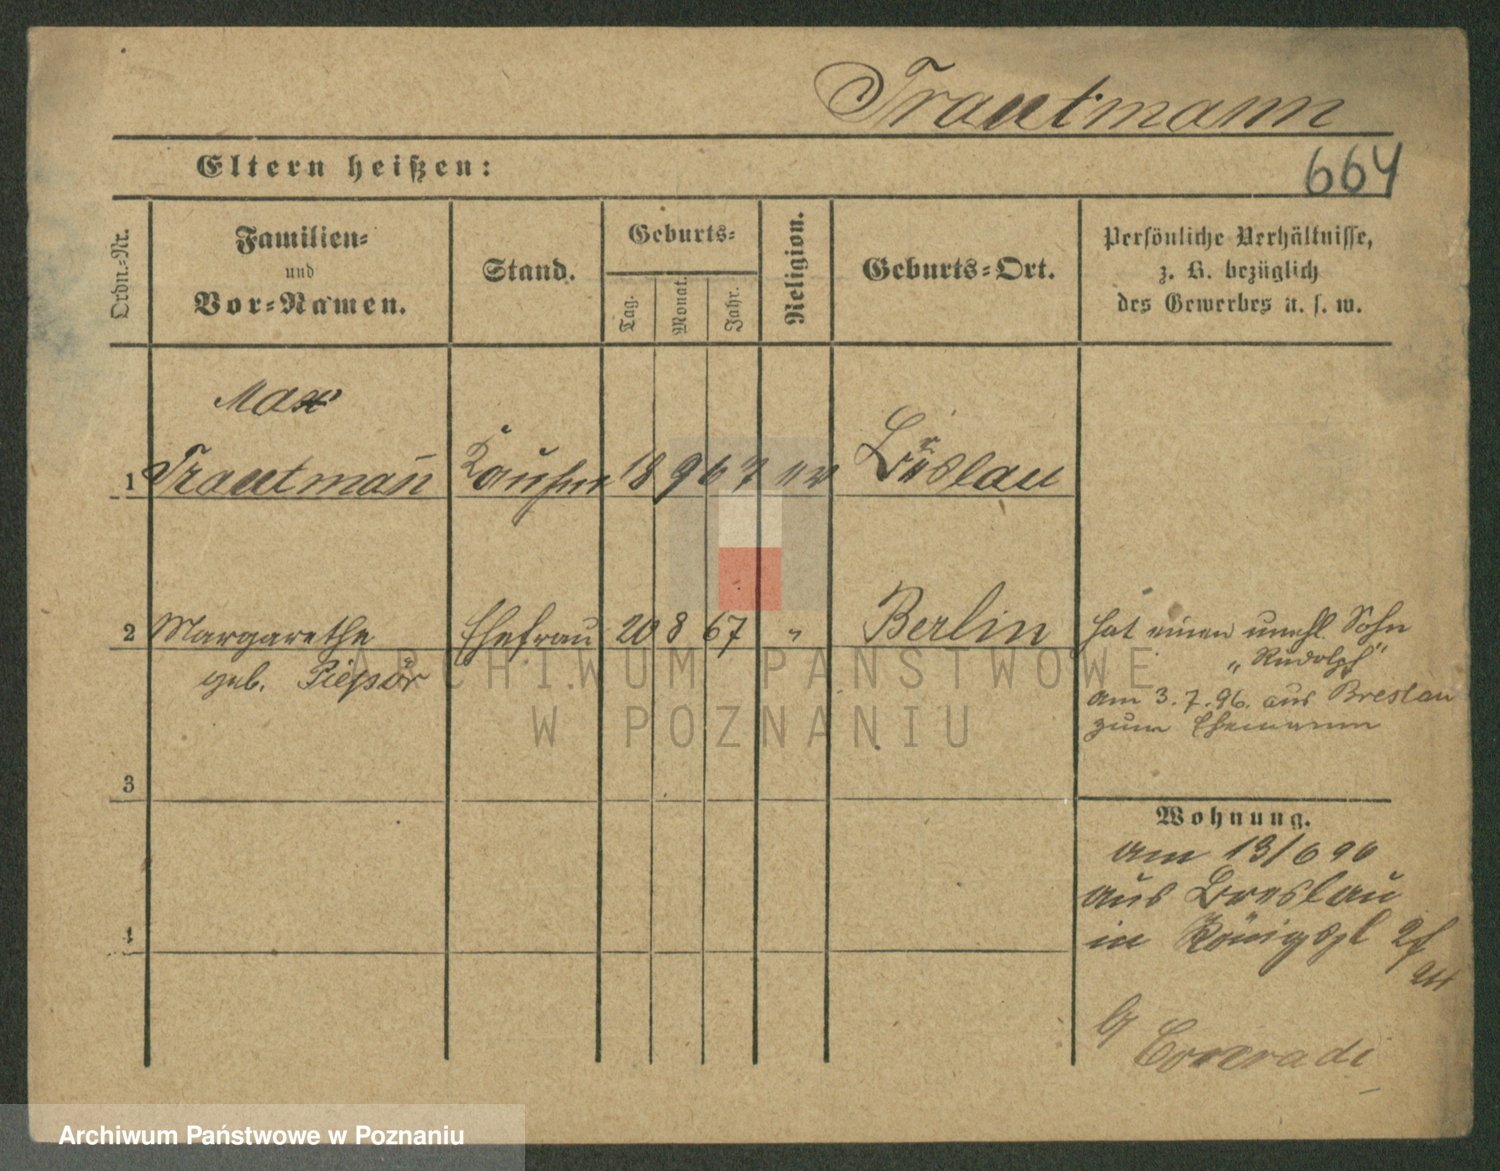 Trautmann
Eltern heißen:
664
Ordn.-Nr.
Familien-
und
Vor-Namen.
Stand.
Geburts-
Tag.
Monat.
Jahr.
Religion.
Geburts-Ort.
Persönliche Verhältnisse,
z. B. bezüglich
des Gewerbes u. s. w.
Max
1 Trautmann Kaufm 18 9 67 ev Breslau
2 Margarethe Ehefrau 20 8 67 " Berlin hat einen unehl. Sohn
geb. "Rudolph"
am 3.7.96. aus Breslau
zum Ehemann
3
Wohnung.
am 13/6 96
aus Breslau
in Königspl
4
Conradi
ARCHIWUM PAŃSTWOWE
W POZNANIU
Archiwum Państwowe w Poznaniu